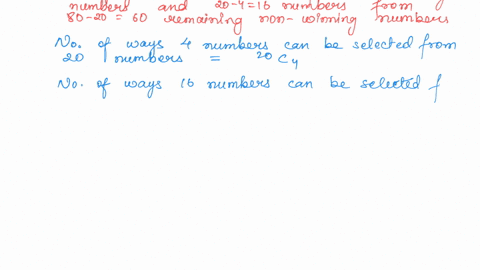 numbers and 20-4=16 numbers from
80-20 = 60 remaining non-winning numbers
No. of ways 4 numbers can be selected from
20 numbers = ²⁰C₄
No. of ways 16 numbers can be selected f